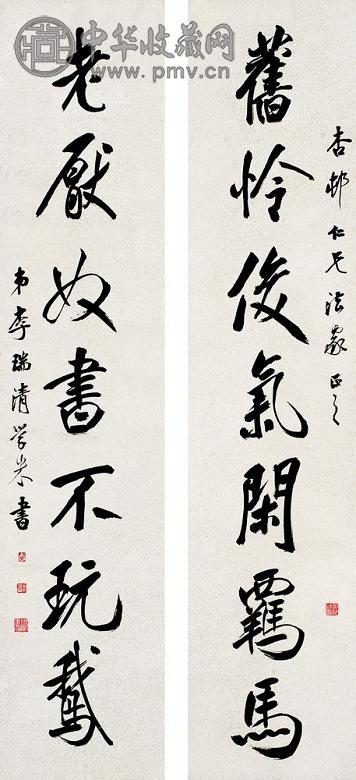 中华收藏网
www.pmv.cn
杏邨仁兄法家正之
舊怜俊氣閑羈馬
老厭奴書不玩鵝
弟李瑞清學米書